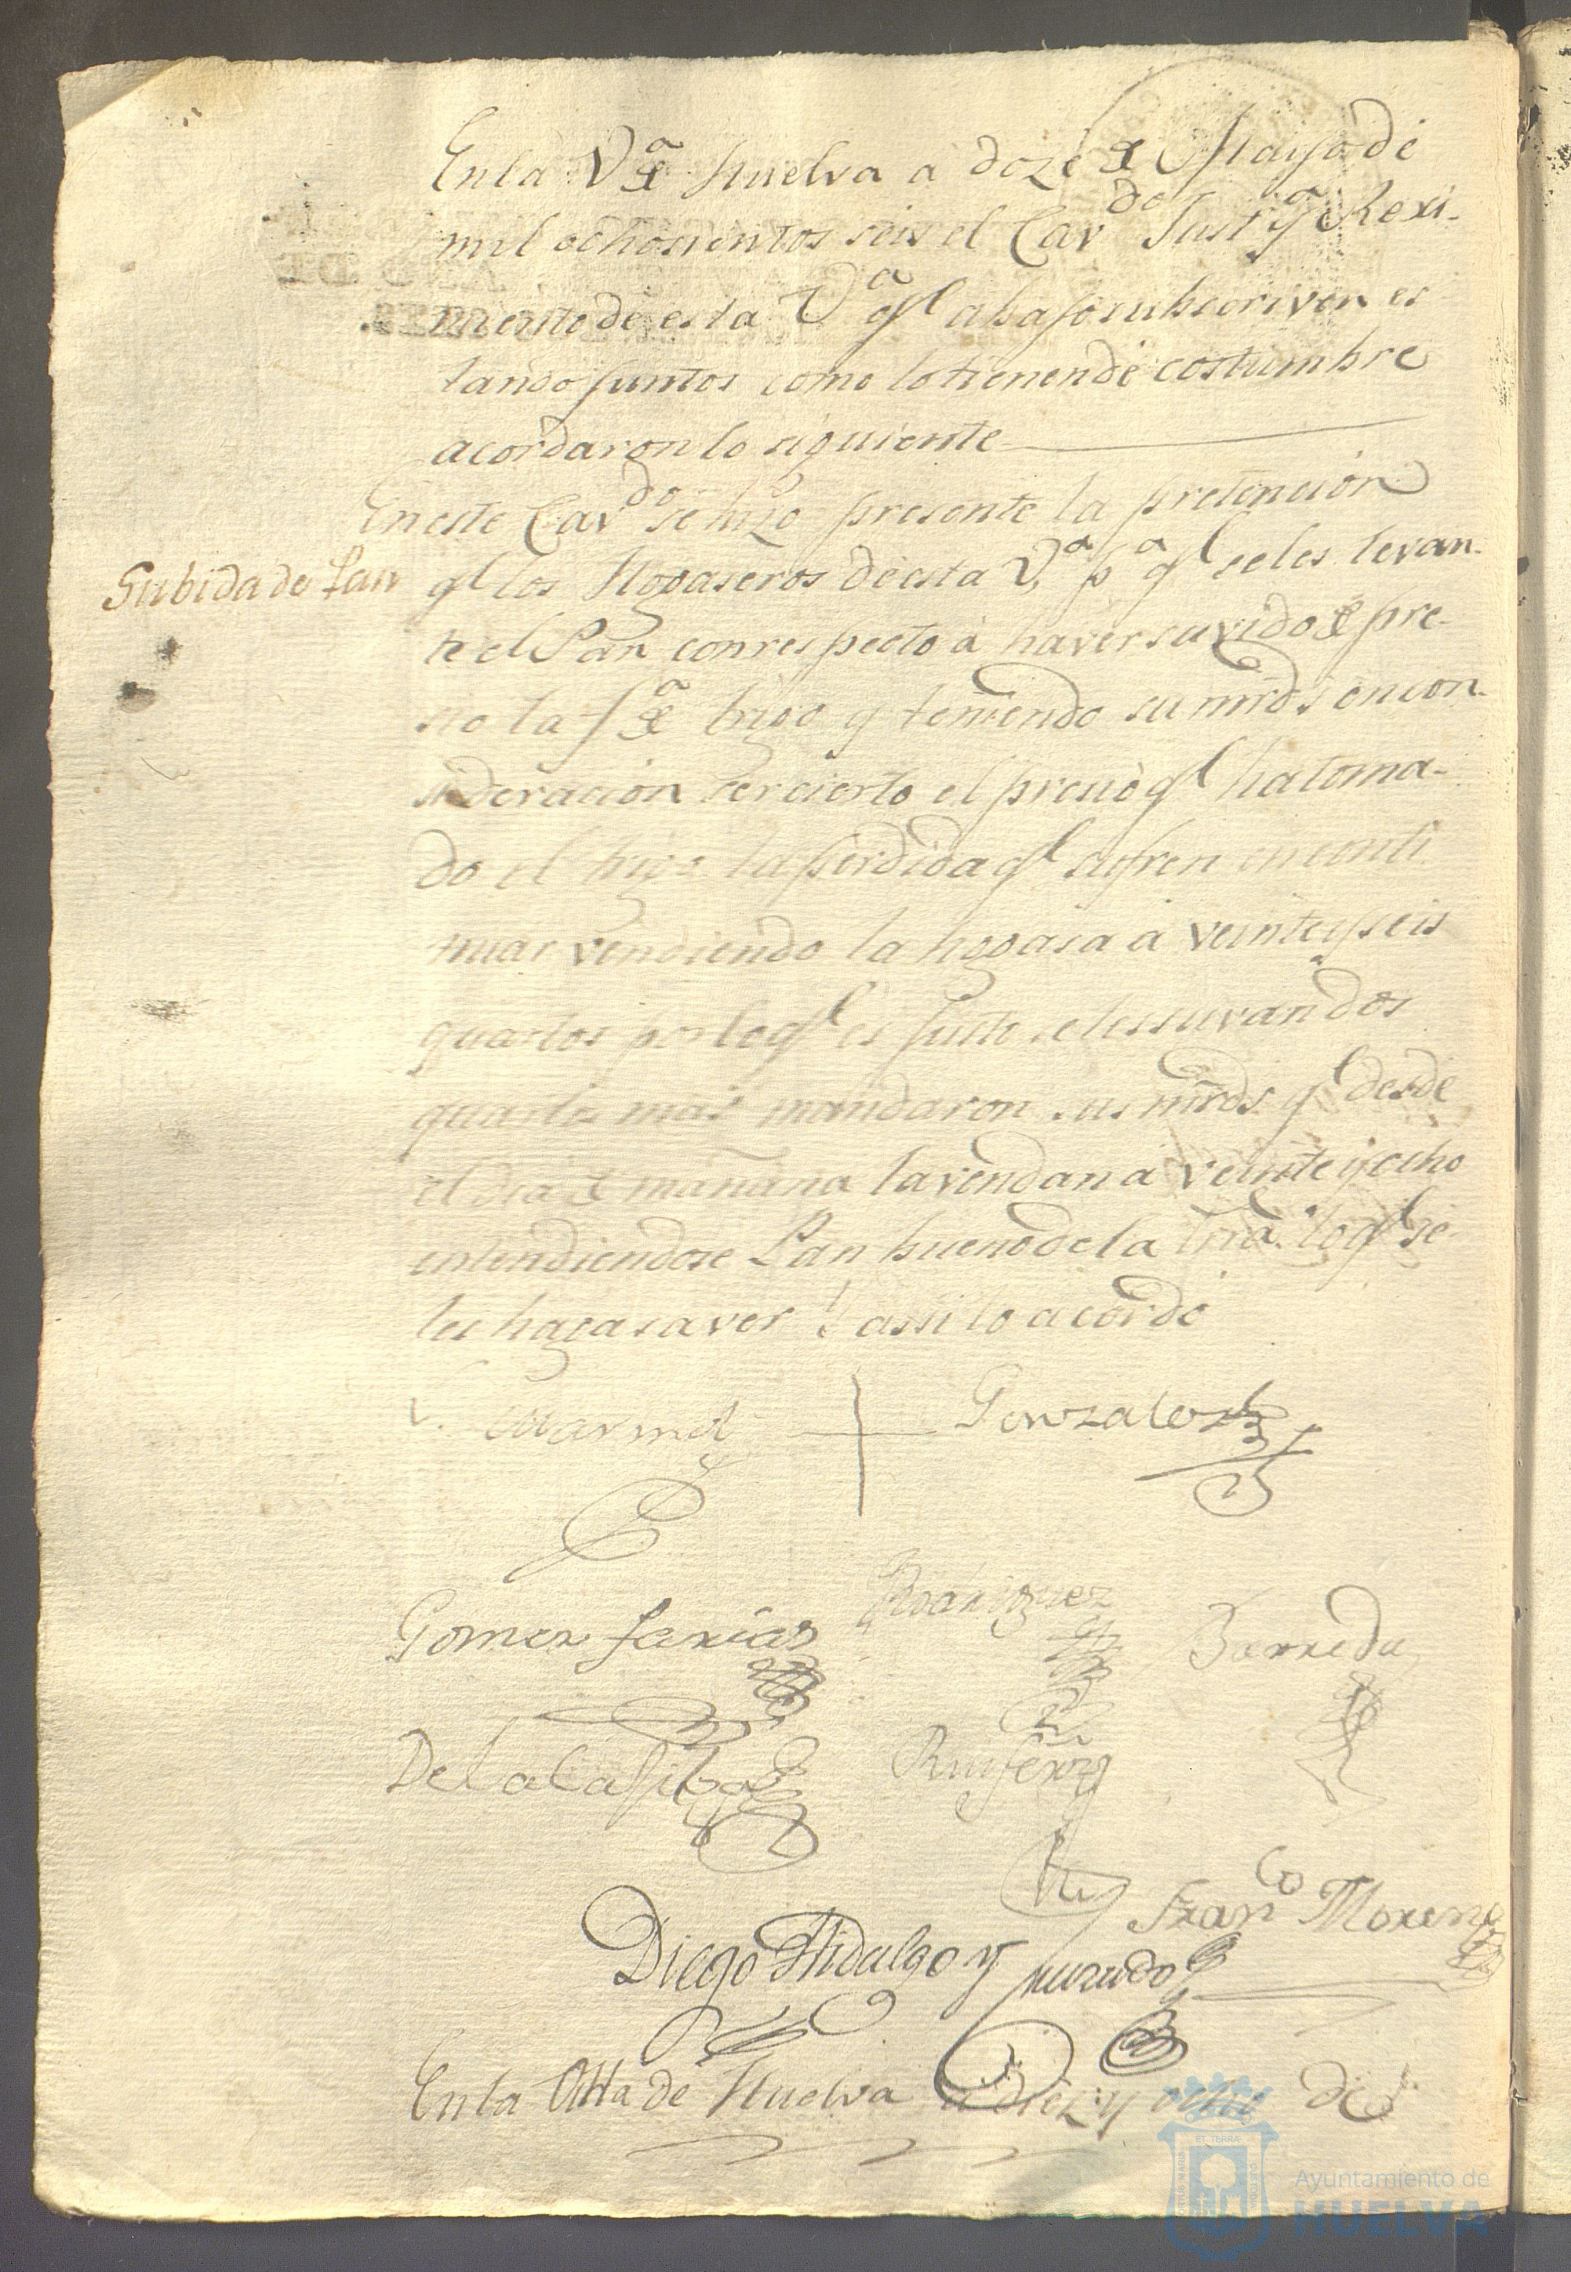 En la V.ª de Huelva a doze de Mayo de
mil ochosientos seis el Cav.do Just.ª y Rexi-
miento de esta V.ª q.l abajo subscriven es
tando juntos como lo tienen de costumbre
acordaron lo siguiente
En este Cav.do se hizo presente la pretencion
Subida de Pan
q.l los Hogaseros de esta V.ª p.ª q.l se les levan-
te el Pan con respecto à haver suvido de pre-
sio la f.ª de trigo y teniendo su mrds en con-
sideracion ser cierto el presio q.l ha toma-
do el trigo la perdida q.l sufren en conti
nuar vendiendo la hogasa à veinte y seis
quartos por lo q.l es justo se les suvan dos
quartos mas mandaron sus mrds. q.l desde
el dia de mañana la vendan à veinte y ocho
entendiendose Pan bueno de la trrá. lo q.l se
les haga saver Y assi lo acordó
Marmol Gonzalez
Gomez Farias Rodriguez Barreda
De la Ruifern
Fran.co Moreno
Diego Hidalgo y Jurado
En la Villa de Huelva a diez y ocho de
Ayuntamiento de
HUELVA